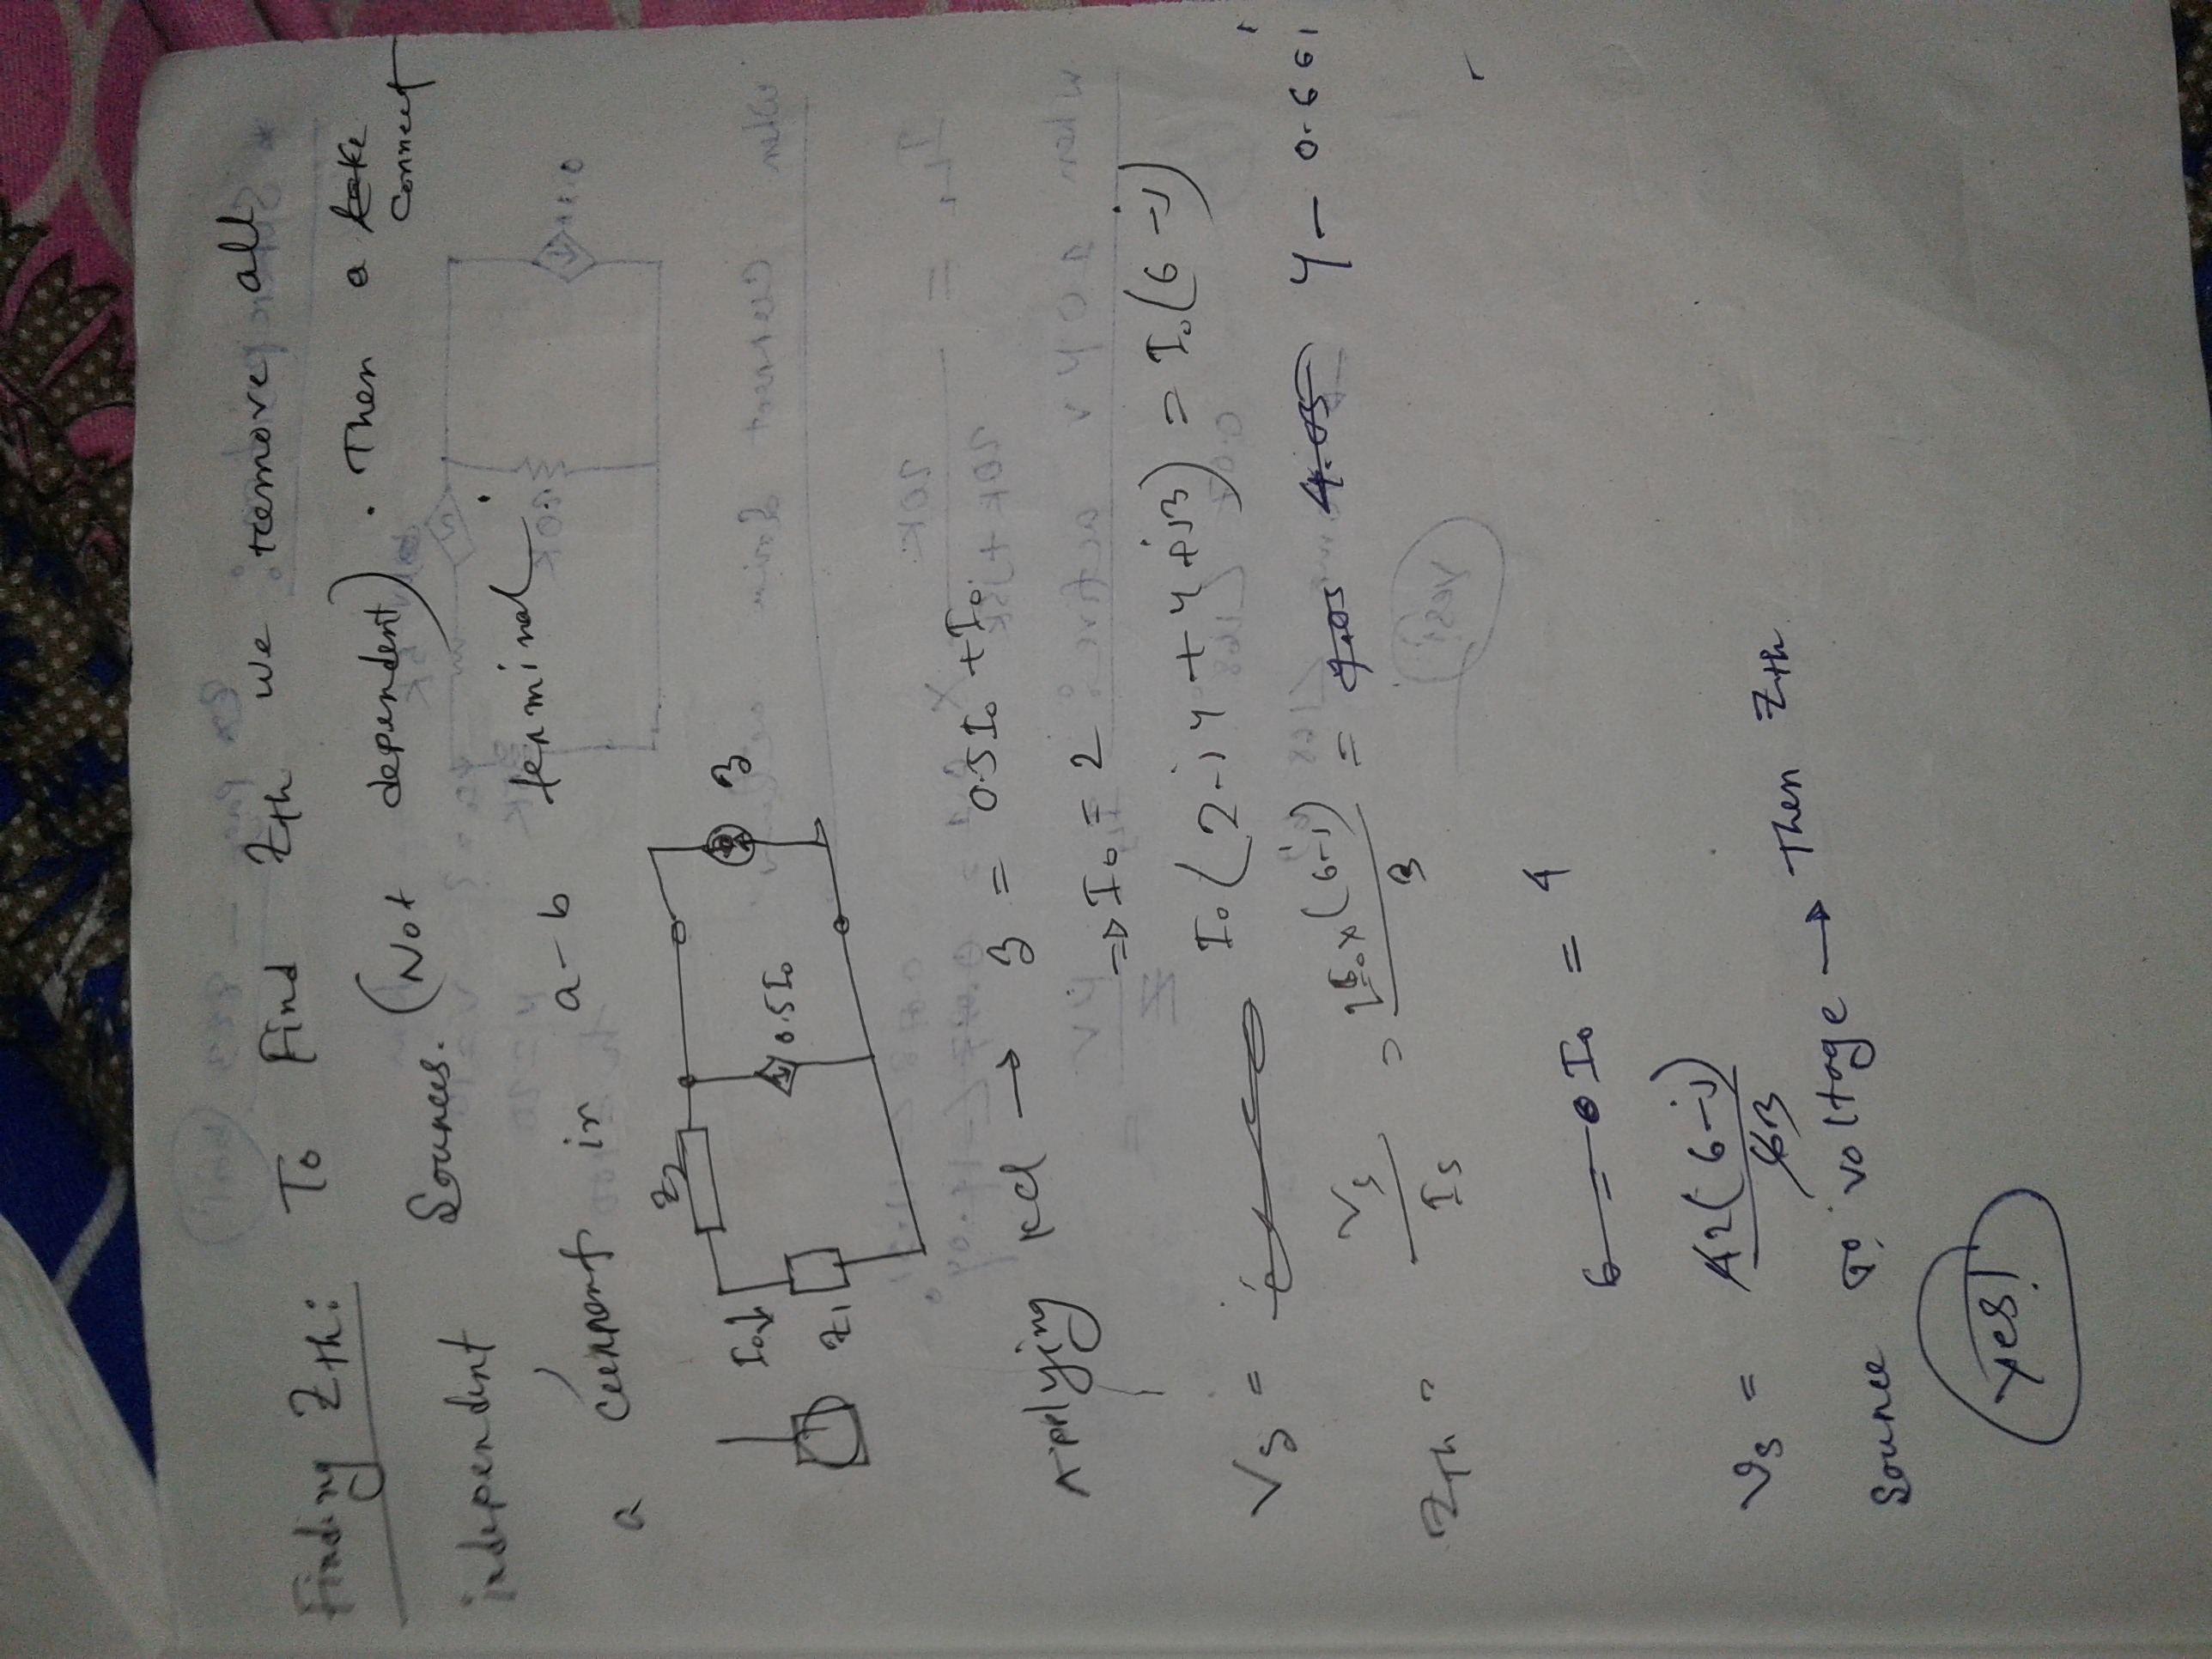 Finding Zth: To Find Zth we remove all
independent Sources. (Not dependent). Then a take
connect
a current in a-b terminal.
Z2
I0↓
0.5I0
3
Z1
Applying kcl → 3 = 0.5I0 + I0
⇒ I0 = 2
Vs = I0(2-j4 + 4+j3) = I0(6-j)
ZTh = Vs/Is = 2 x(6-j)/3 = 4.05 4.05 4 - 0.66j
6 = 6 I0 = 4
Vs = 42(6-j)/63
Source To voltage → Then Zth
Yes!